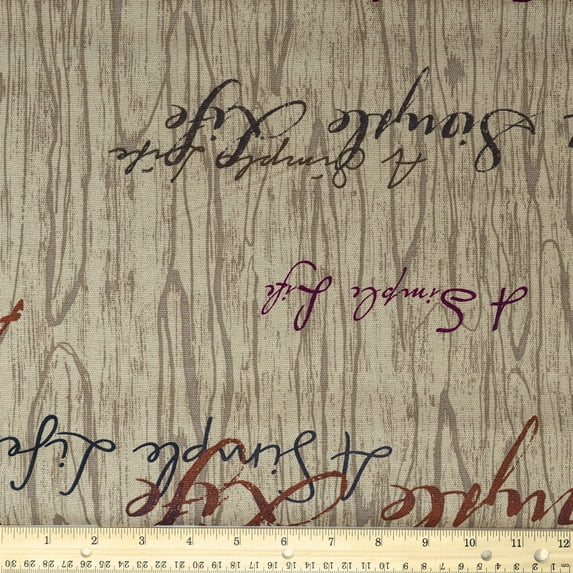 Simple Life
A Simple Life
A Simple Life
A Simple Life
Life
1 2 3 4 5 6 7 8 9 10 11 12
30 29 28 27 26 25 24 23 22 21 20 19 18 17 16 15 14 13 12 11 10 9 8 7 6 5 4 3 2 1